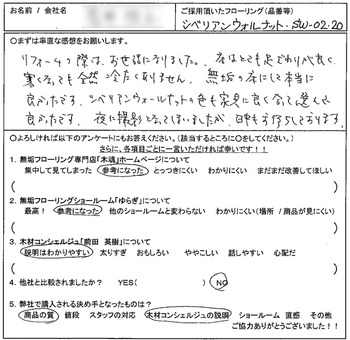 お名前 / 会社名
ご採用頂いたフローリング(品番等)
シベリアンウォルナット・SW-02・20
○まずは率直な感想をお願いします。
リフォームの際は、お世話になりました。木はとても足ざわりが良く、
寒くなっても全然冷たくありません。無垢の木にして本当に
良かったです。シベリアンウォールナットの色も家具に良く合って選んで
良かったです。夜に撮影となってしまいましたが、日中も
○よろしければ以下のアンケートにもお答えください。(該当するところに○をしてください。)
さらに、各項目ごとに一言いただければ幸いです!!
1. 無垢フローリング専門店「木魂」ホームページについて
集中して見てしまった 参考になった とっつきにくい わかりにくい まだまだ改善してほしい
2. 無垢フローリングショールーム「ゆらぎ」について
最高! 参考になった 他のショールームと変わらない わかりにくい(場所 / 商品が見にくい)
3. 木材コンシェルジュ「前田 英樹」について
説明はわかりやすい 太りすぎ おもしろい ややこしい 話しやすい 心配だ
4. 他社と比較されましたか? YES( ) NO
5. 弊社で購入される決め手となったものは?
商品の質 値段 スタッフの対応 木材コンシェルジュの説明 ショールーム 直感 その他
ご協力ありがとうございました!!